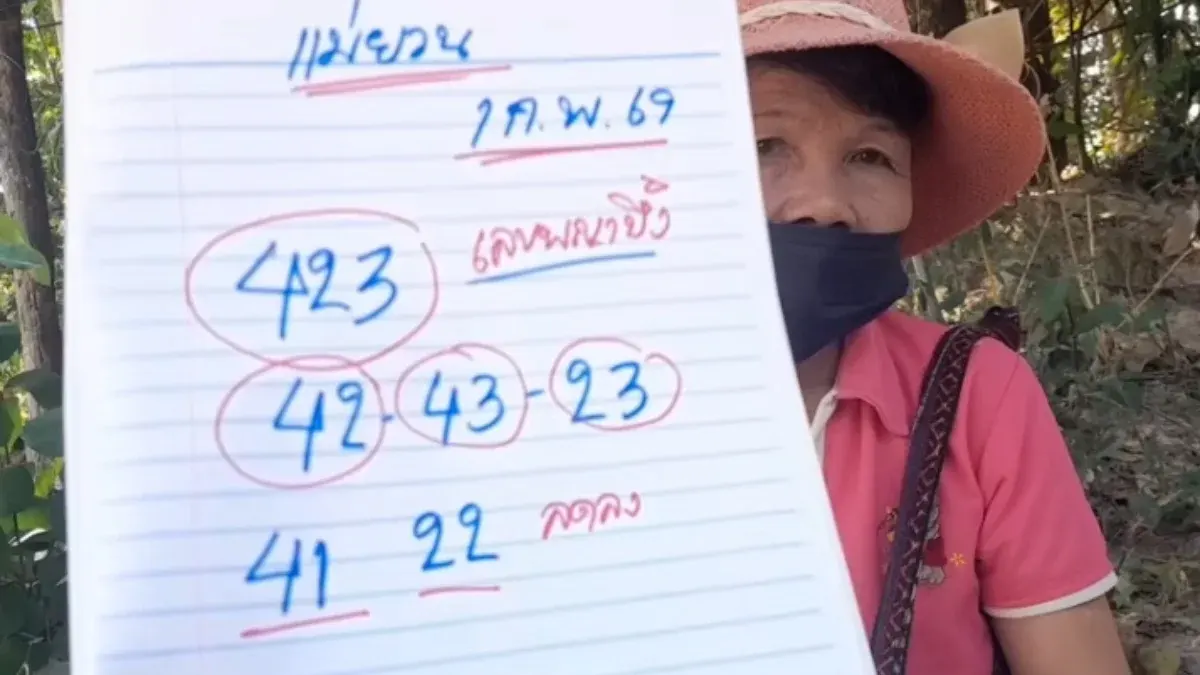 แม่ยวน
1 ก.พ. 69
423 เลขพญาผึ้ง
42 - 43 - 23
41 22 ลดลง